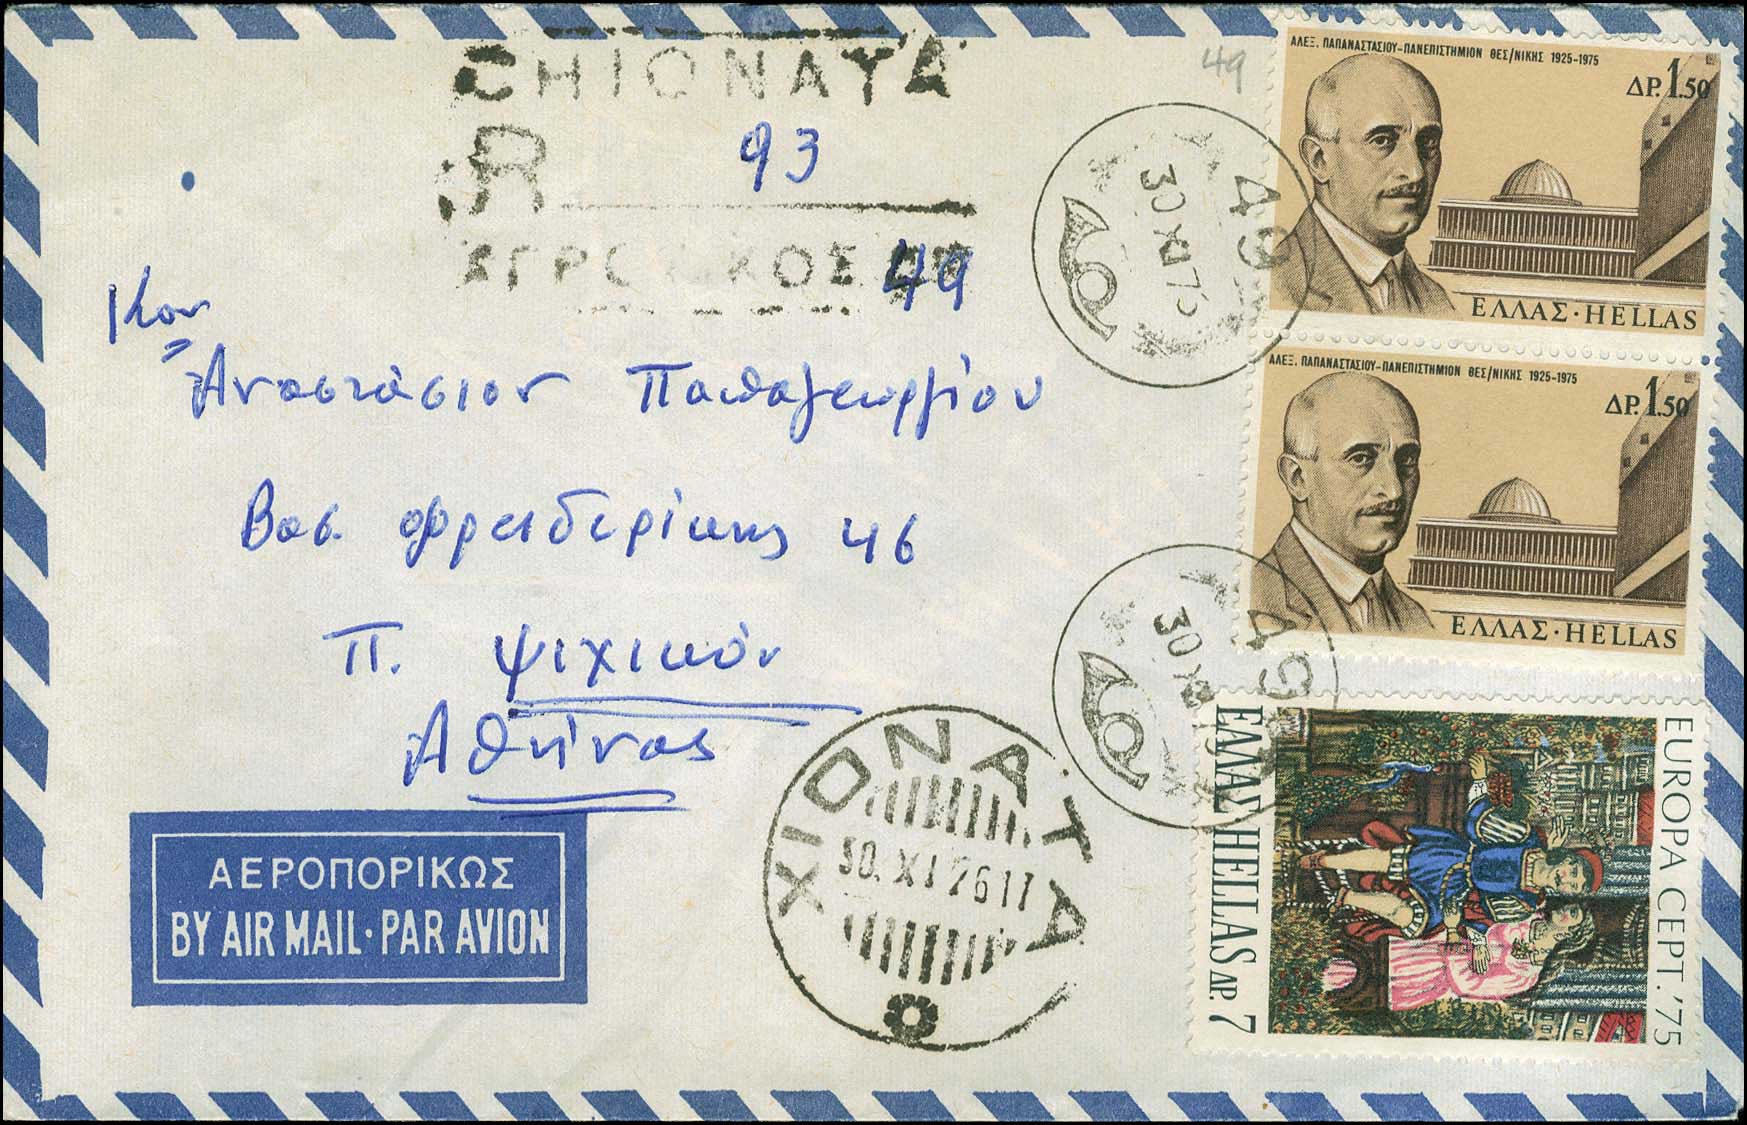 CHIONATA
49
R 93
49
ΑΛΕΞ. ΠΑΠΑΝΑΣΤΑΣΙΟΥ-ΠΑΝΕΠΙΣΤΗΜΙΟΝ ΘΕΣ/ΝΙΚΗΣ 1925-1975
ΔΡ. 1.50
ΕΛΛΑΣ·HELLAS
49
30 XI 75
Κον
Αναστάσιον Παπαγεωργίου
Βασ. Φρειδερίκης 46
Π. Ψιχικόν
Αθήνας
ΑΛΕΞ. ΠΑΠΑΝΑΣΤΑΣΙΟΥ-ΠΑΝΕΠΙΣΤΗΜΙΟΝ ΘΕΣ/ΝΙΚΗΣ 1925-1975
ΔΡ. 1.50
ΕΛΛΑΣ·HELLAS
49
30 XI
ΧΙΟΝΑΤΑ
30. XI 76 17
ΕΛΛΑΣ HELLAS ΔΡ. 7
EUROPA CEPT.'75
ΑΕΡΟΠΟΡΙΚΩΣ
BY AIR MAIL·PAR AVION